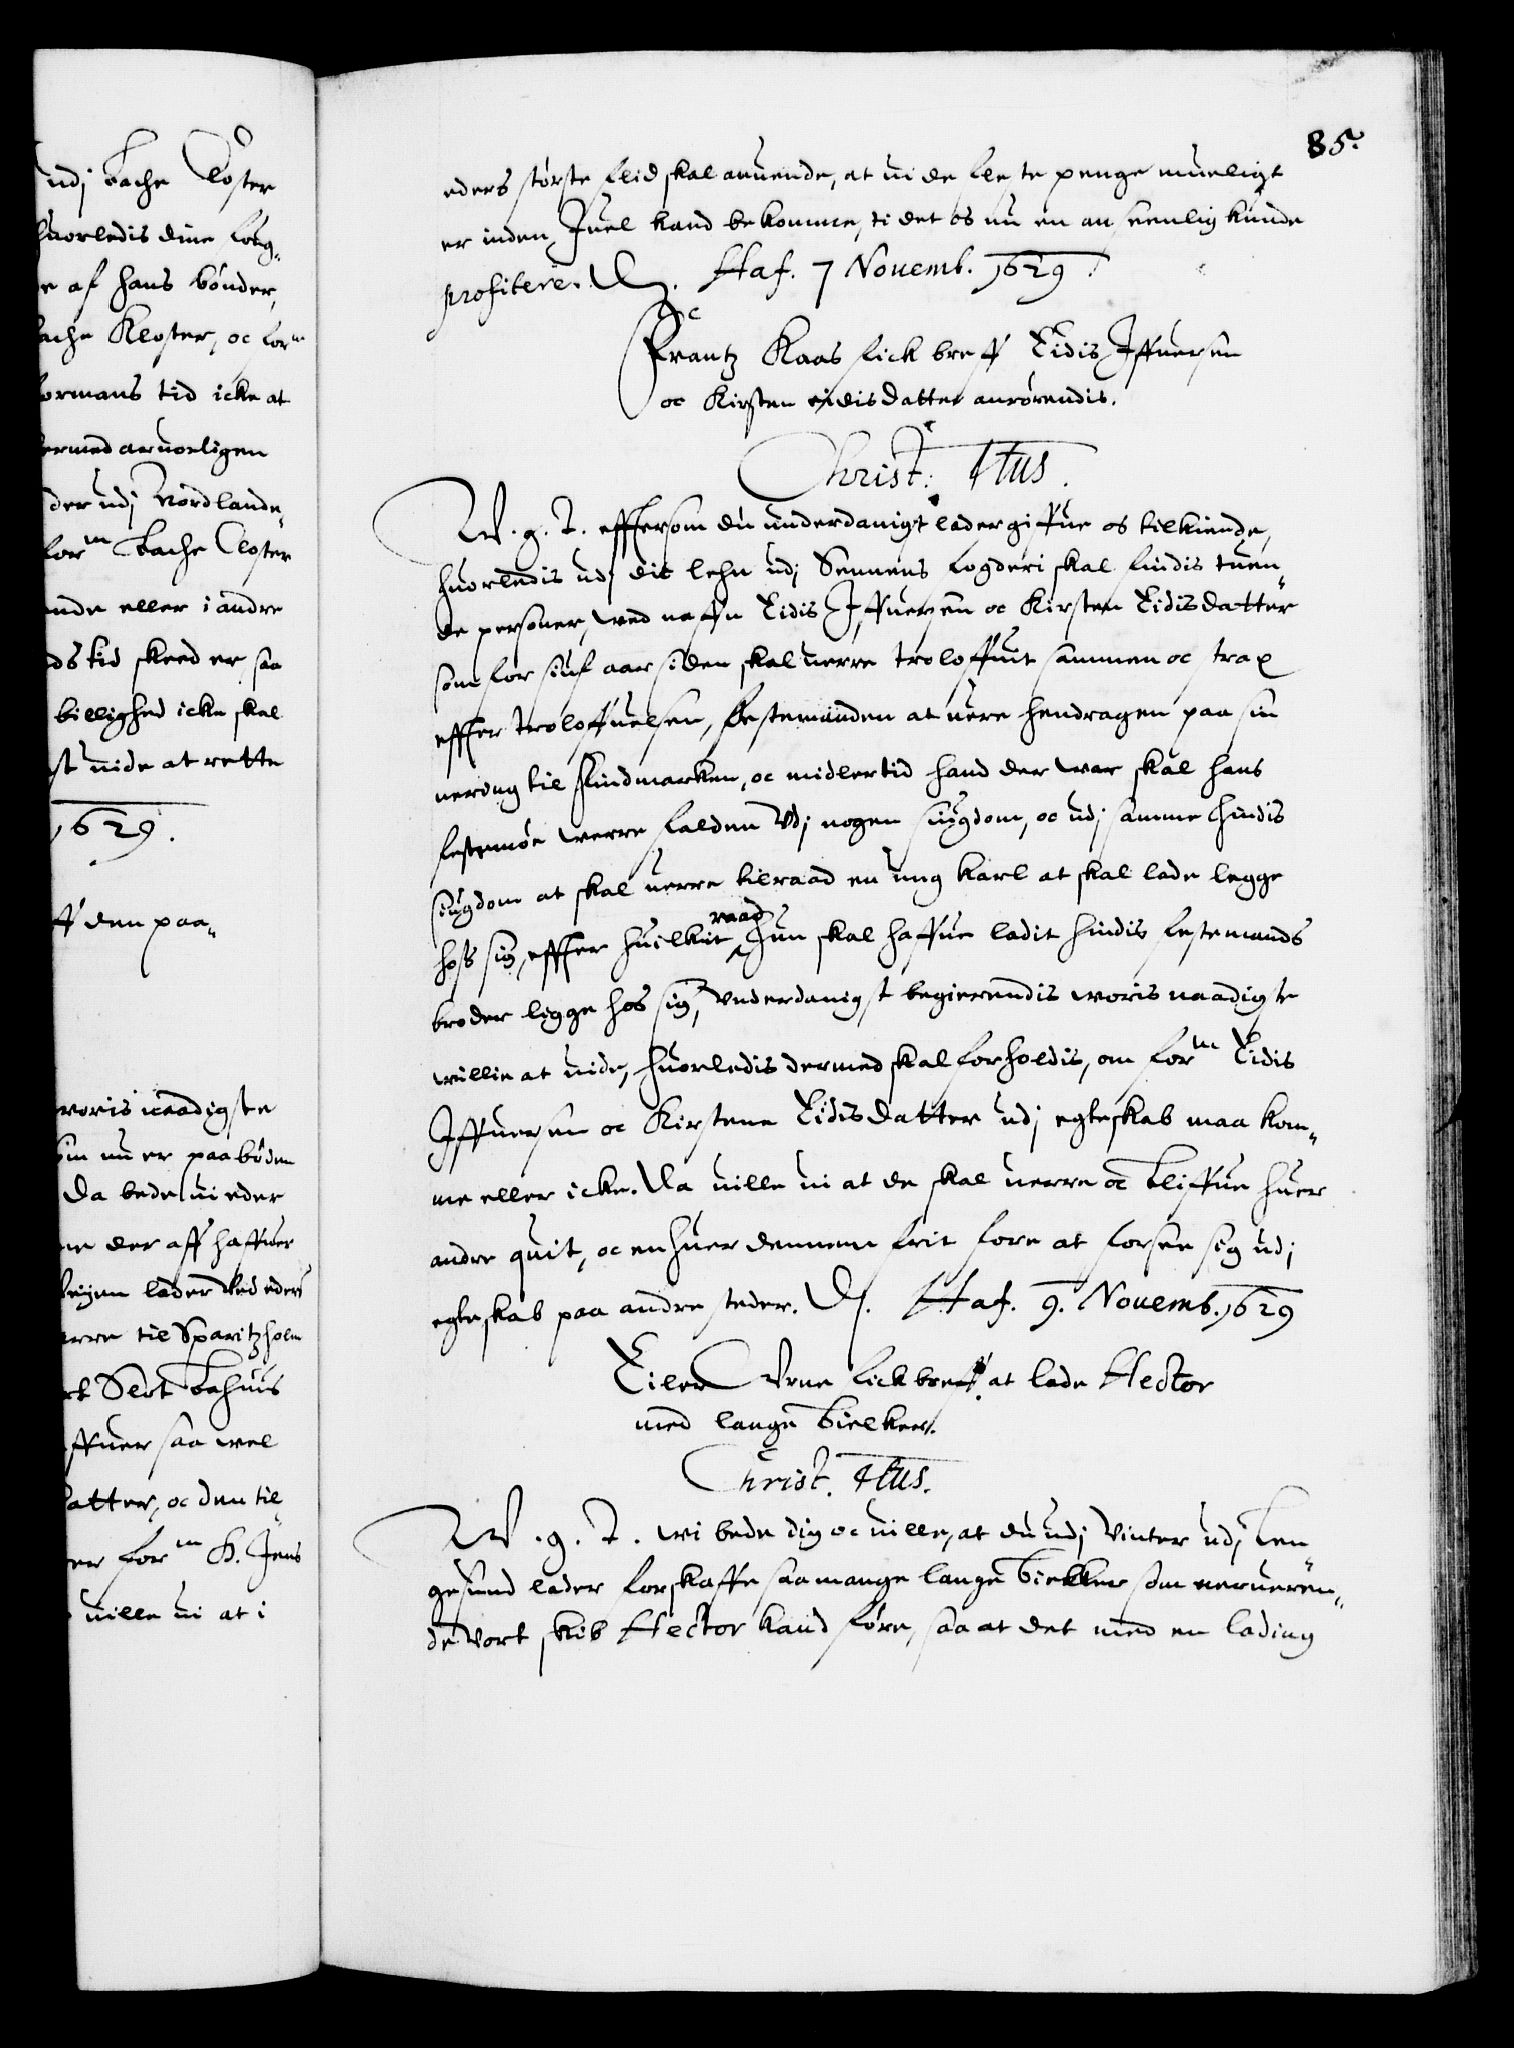 udj Bache Closter
huorledis dine foug-
e af hans bønder,
ache Kloster, oc for.n
formans tid icke at
dermed aruorligen
der udj Nordlande-
for.m Bache Closter
ende eller i andre
ds tid skeed er saa
billighed icke skal
st uide at rette
1629.
ff den paa-
woris naadigste
som nu er paabøden
Da bede ui eder
der aff haffuer
lader ved eders
erre til Sparitzholm
Slot Bahuus
ffuer saa wel
atter, oc den til-
er for.m H. Jens
uille ui at i
85.
eders største flid skal anuende, at ui de fleste penge mueligt
er inden Juel kand bekomme, ti det os nu en anseenlig kunde
profitere. D. Haf. 7 Nouemb. 1629.
Frantz Kaas fick breff Eidis Iffuersen
oc Kirsten eidisdatter anrørendis.
Christ: 4tus.
W. g. T. effersom du underdanigst lader giffue os tilkiende,
huorledis udj dit lehn udj Sennens fogderi skal findis tuen-
de personer, wed naffn Eidis Iffuersen oc Kirsten Eidisdatter
som for siuf aar siden skal uerre troloffuit sammen oc strax
effer troloffuelsen, Festemanden at uere hendragen paa sin
nering til Findmarken, oc midlertid hand der war skal hans
festemøe werre falden Udj nogen siugdom, oc udj samme hindis
siugdom at skal uerre tilraad en ung karl at skal lade legge
hoss sig, effer huilket raad hun skal haffue ladit hindis festemands
broder ligge hos sig, Vnderdanigst begierendis woris naadigste
willie at uide, huorledis dermed skal forholdis, om for.m Eidis
Iffuersen oc Kirstene Eidisdatter udj egteskab maa kom-
me eller icke. Da uille ui at de skal uerre oc bliffue huer
andre quit, oc en huer dennem frit fore at forsee sig udj
egteskab paa andre steder. D. Haf. 9. Nouemb. 1629
Eiler Vrne fick breff at lade Hector
med lange Bielker.
Christ. 4tus.
W. g. T. wi bede dig oc uille, at du udj Vinter udj Lan-
gesund lader forskaffe saa mange lange Bielker som neruerén-
de vort skib Hector kand føre, saa at det med en lading